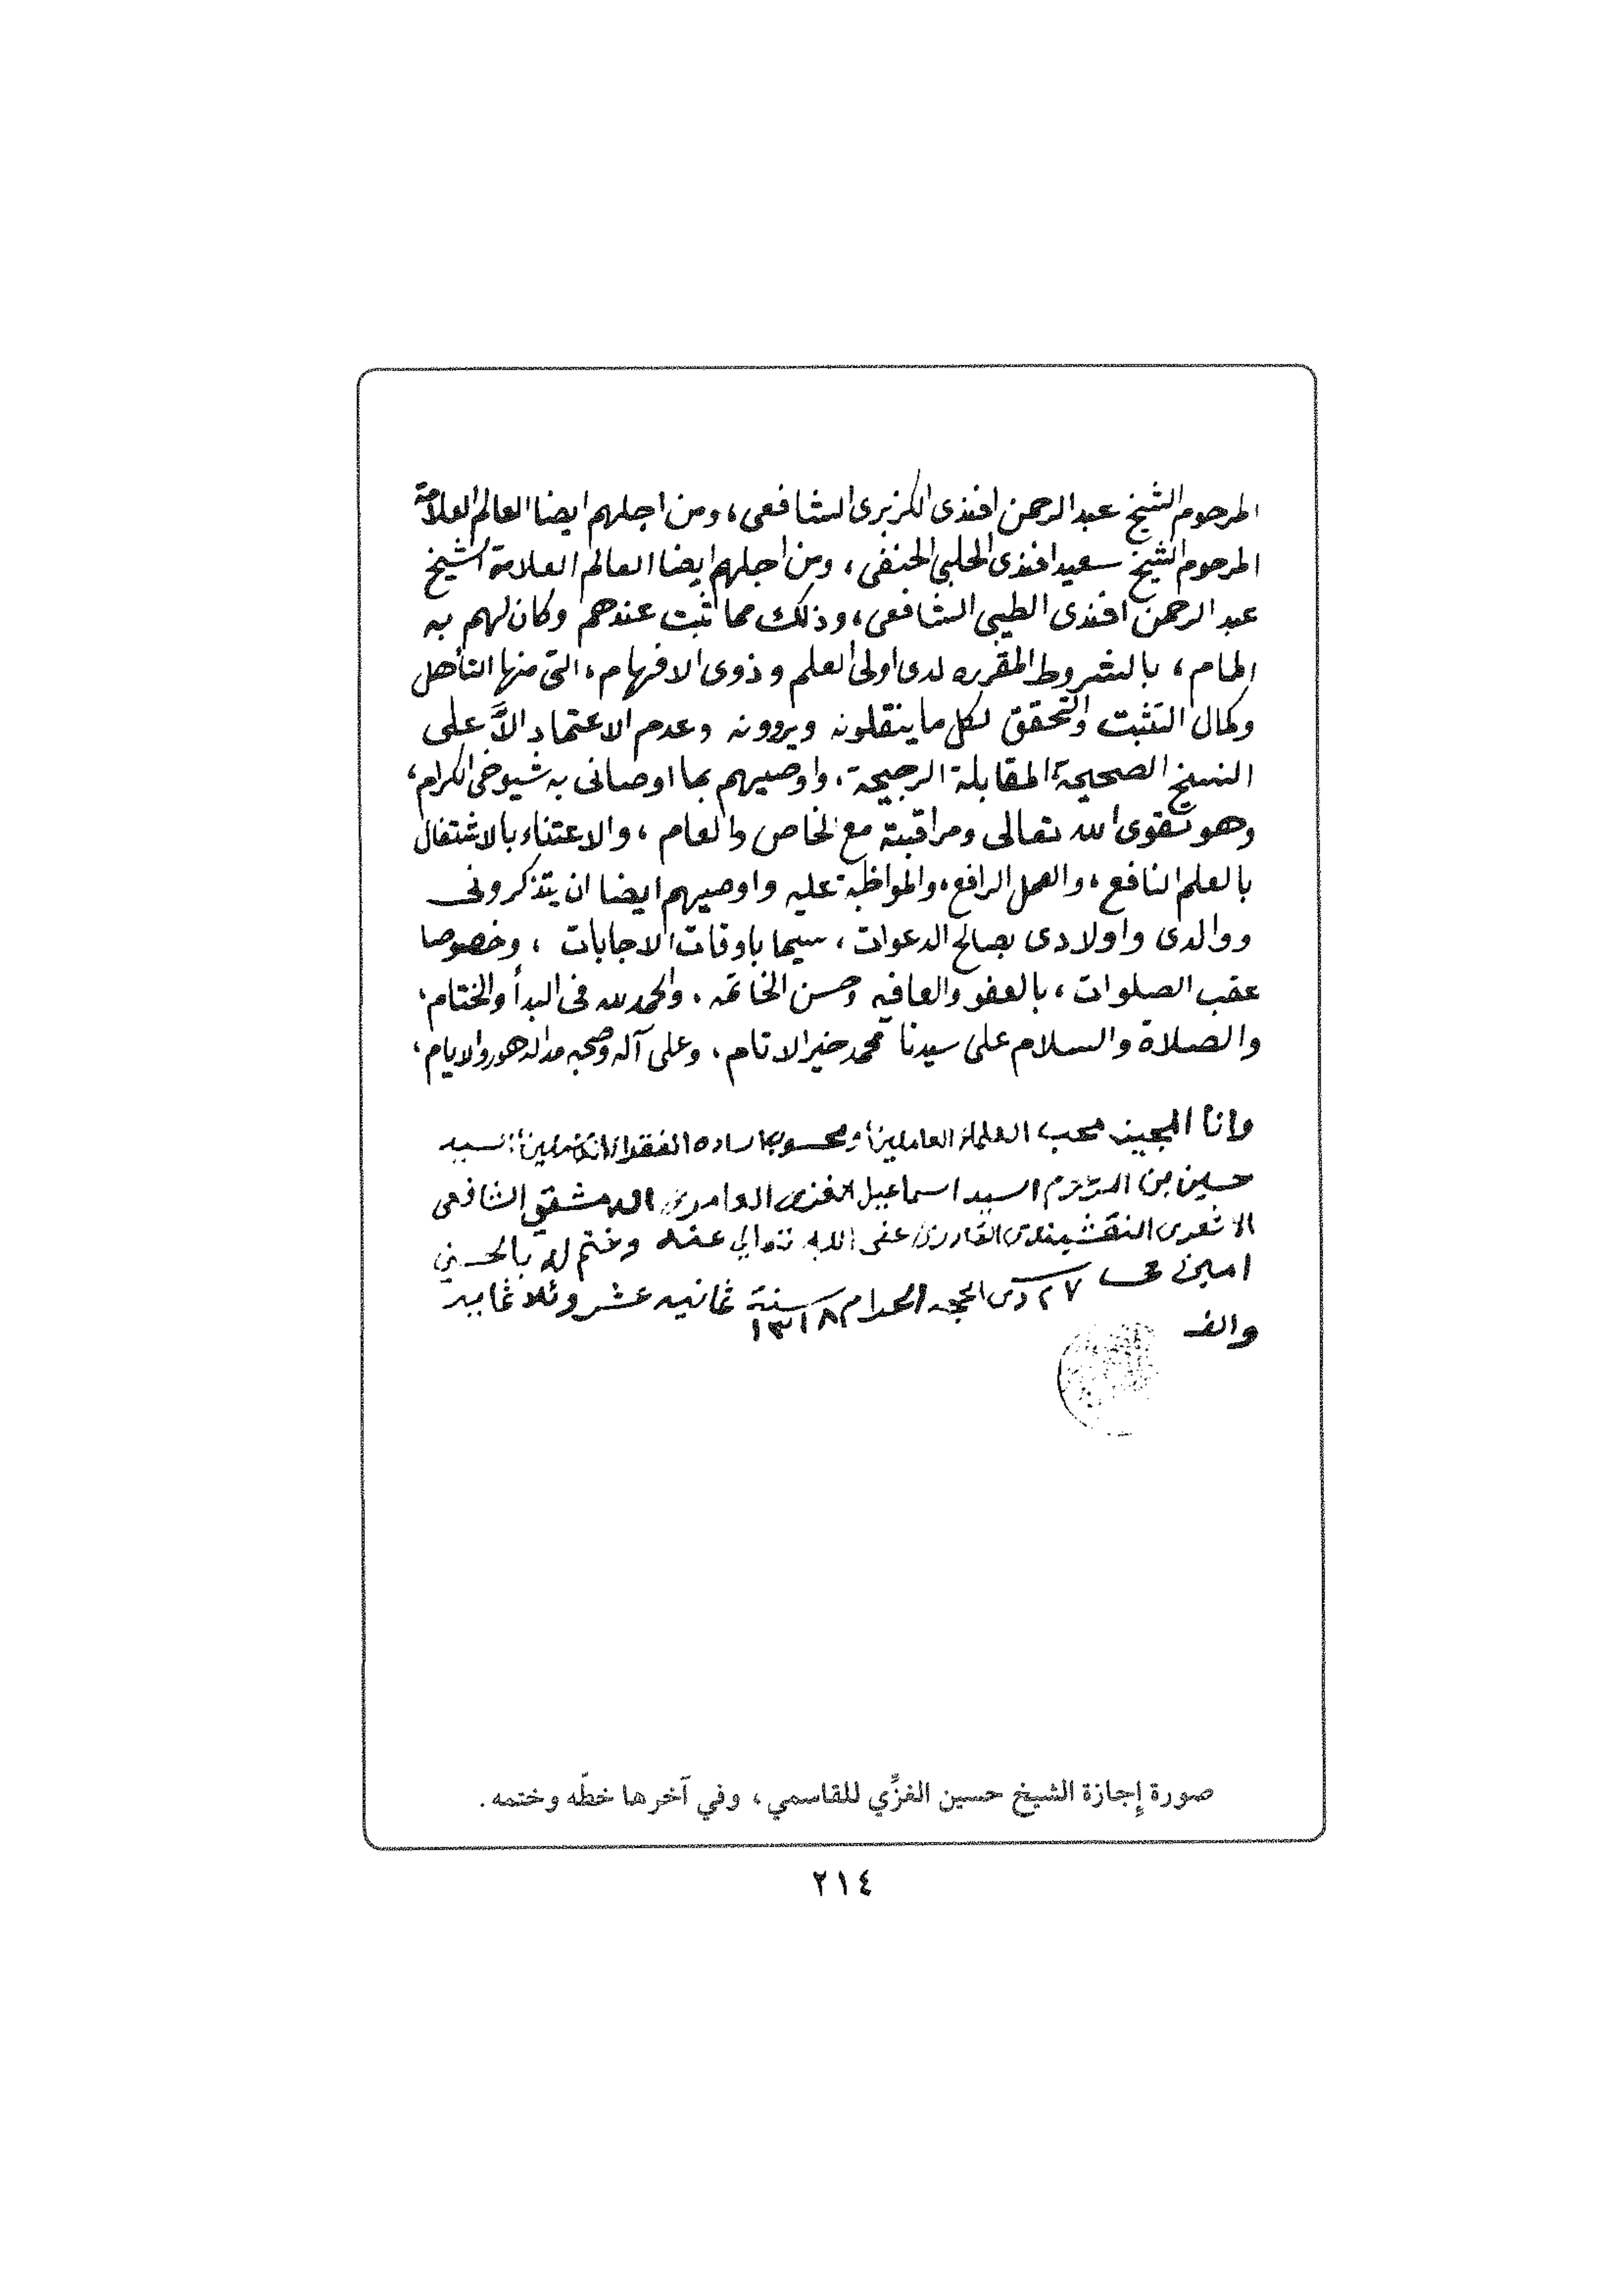 المرحوم الشيخ عبد الرحمن افندى الكزبرى الشافعى، ومن اجلهم ايضا العالم العلامة
المرحوم الشيخ سعيد افندى الحلبى الحنفى، ومن اجلهم ايضا العالم العلامة الشيخ
عبد الرحمن افندى الطيبى الشافعى، وذلك مما ثبت عندهم وكان لهم به
المام، بالشروط المقرره لدى اولى العلم وذوى الافهام، التى منها التأهل
وكمال التثبت والتحقق لكل ما ينقلونه ويروونه وعدم الاعتماد الاَّ على
النسخ الصحيحة المقابلة الرجيحة، واوصيهم بما اوصانى به شيوخى الكرام،
وهو تقوى الله تعالى ومراقبته مع الخاص والعام، والاعتناء بالاشتغال
بالعلم النافع، والعمل الرافع، والمواظبة عليه واوصيهم ايضا ان يتذكرونى
ووالدى واولادى بصالح الدعوات، سيما باوقات الاجابات، وخصوصا
عقب الصلوات، بالعفو والعافيه وحسن الخاتمه، والحمد لله فى البدأ والختام،
والصلاة والسلام على سيدنا محمد خير الانام، وعلى آله وصحبه مدا الدهور والايام،
وانا المجيز محب العلماء العاملين ومحسوب الساده الفقراء السيد
حسين بن المرحوم السيد اسماعيل الغزى العامرى الدمشقي الشافعى
الاشعرى النقشبندى القادرى عفى الله تعالي عنه وختم له بالحسنى
امين فى ٢٧ ذى الحجه الحرام سنة ١٣١٨ ثمانيه عشر وثلاثمايه
والف
صورة إجازة الشيخ حسين الغزِّي للقاسمي، وفي آخرها خطّه وختمه.
٢١٤